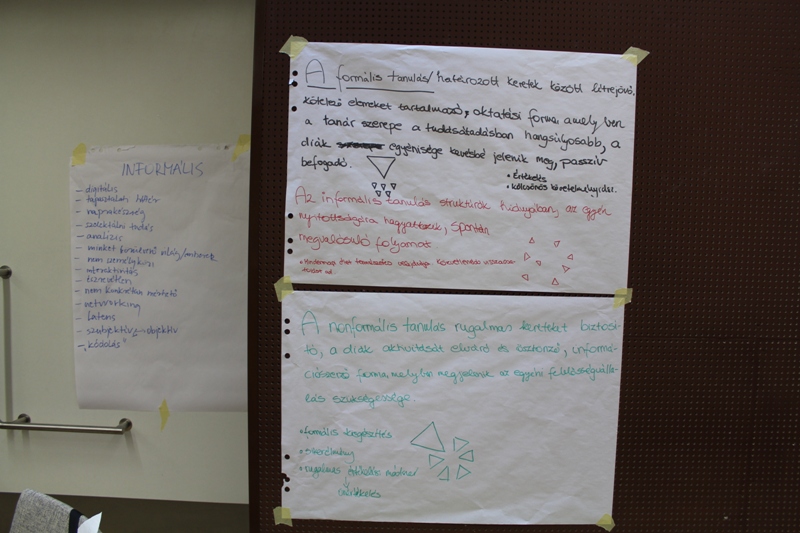 INFORMÁLIS
- digitális
- tapasztalati háttér
- naprakészség
- szelektálni tudás
- analízis
- minket formáló világ/emberek
- nem személyközi
- interaktivitás
- észrevétlen
- nem konkrétan mérhető
- networking
- latens
- szubjektív objektív
- "kódolás"
A formális tanulás/ határozott keretek között létrejövő,
kötelező elemeket tartalmazó, oktatási forma, amelyben
a tanár szerepe a tudásátadásban hangsúlyosabb, a
diák egyénisége kevésbé jelenik meg, passzív
befogadó.
• Értékelés
• Kölcsönös követelmény
Az informális tanulás struktúrák hiányában, az egyén
nyitottságára hagyatkozó, spontán
megvalósuló folyamat
A nonformális tanulás rugalmas kereteket biztosí-
tó, a diák aktivitását elváró és ösztönző,
forma, melyben megjelenik az egyéni felelősségválla-
lás szükségessége.
• formális kiegészítés
• szerzőlmény
• rugalmas értékelés módszer